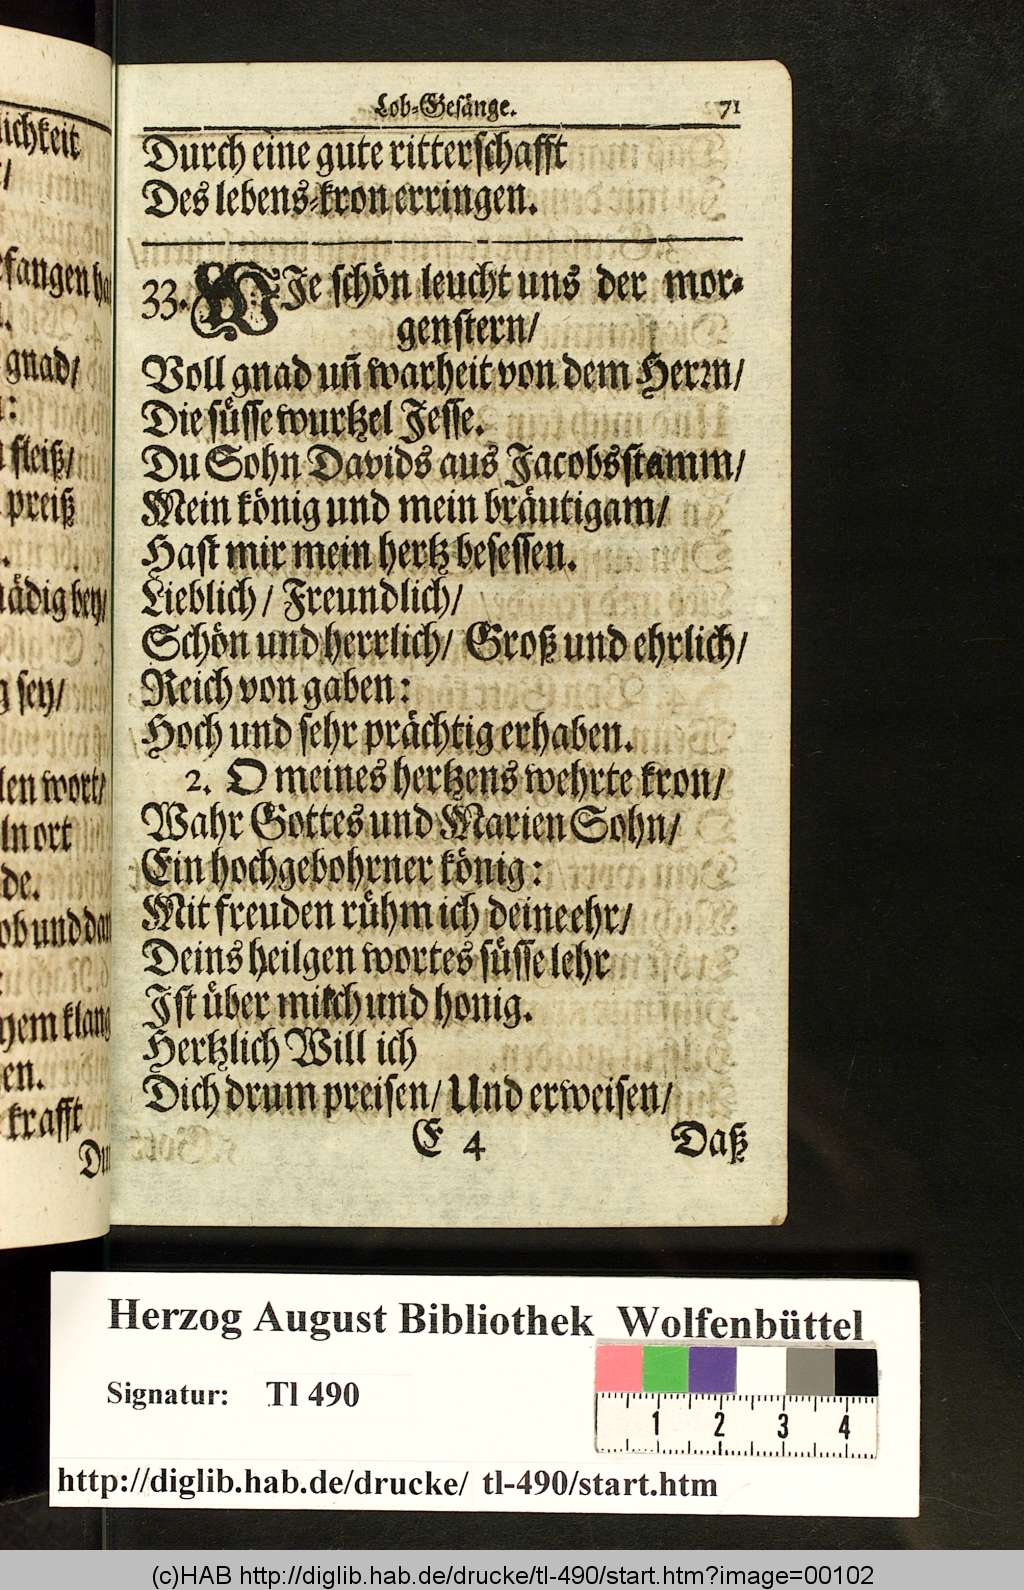 lichkeit
efangen
gnad/
fleiß/
preiß
nädig bey/
sey/
len wort/
ln ort
de.
ob und
klang
en.
krafft
Lob-Gesänge. 71
Durch eine gute ritterschafft
Des lebens-kron erringen.
33. WJe schön leucht uns der mor-
genstern/
Voll gnad uñ warheit von dem Herrn/
Die süsse wurtzel Jesse.
Du Sohn Davids aus Jacobs stamm/
Mein könig und mein bräutigam/
Hast mir mein hertz besessen.
Lieblich/ Freundlich/
Schön und herrlich/ Groß und ehrlich/
Reich von gaben:
Hoch und sehr prächtig erhaben.
2. O meines hertzens wehrte kron/
Wahr Gottes und Marien Sohn/
Ein hochgebohrner könig:
Mit freuden rühm ich deine ehr/
Deins heilgen wortes süsse lehr
Jst über milch und honig.
Hertzlich Will ich
Dich drum preisen/ Und erweisen/
E 4 Daß
Herzog August Bibliothek Wolfenbüttel
Signatur: Tl 490
1 2 3 4
http://diglib.hab.de/drucke/ tl-490/start.htm
(c)HAB http://diglib.hab.de/drucke/tl-490/start.htm?image=00102